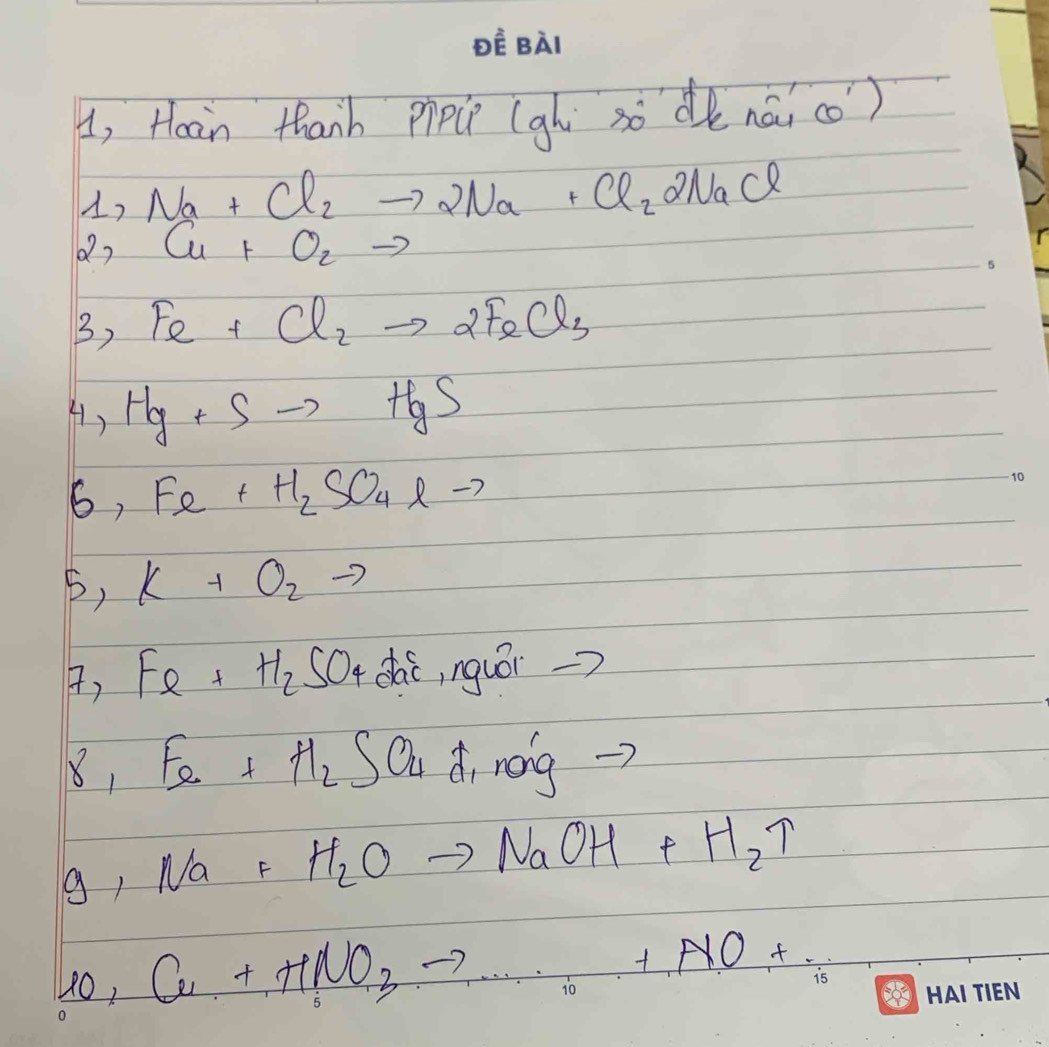 ĐỀ BÀI
1, Hoàn thành PTPƯ (ghi rõ đk nếu có)
1, Na + Cl₂ → 2Na + Cl₂ 2NaCl
2, Cu + O₂ →
5
3, Fe + Cl₂ → 2FeCl₃
4, Hg + S → HgS
6, Fe + H₂SO₄ l →
10
5, K + O₂ →
7, Fe + H₂SO₄ đặc, nguội →
8, Fe + H₂SO₄ đ, nóng →
9, Na + H₂O → NaOH + H₂↑
10, Cu + HNO₃ → ..... + NO + ..
0 5 10 15
HAI TIEN